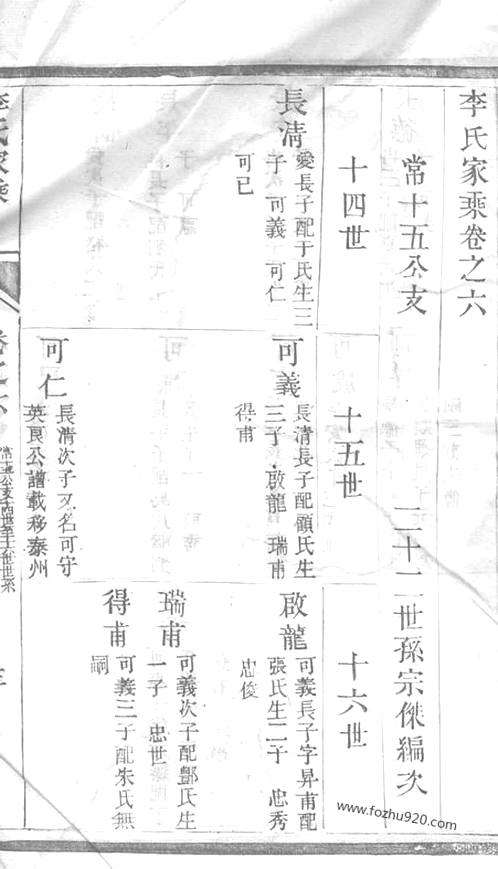 李氏家乘卷之六
常十五公支
二十二世孫宗傑編次
十四世
十五世
十六世
長清
愛長子配于氏生三
子 可義 可仁
可已
可義
長清長子配顧氏生
三子 啟龍 瑞甫
得甫
啟龍
可義長子字昇甫配
張氏生二子 忠秀
忠俊
瑞甫
可義次子配酆氏生
一子 忠世
得甫
可義三子配朱氏無
嗣
可仁
長清次子又名可守
英良公譜載移泰州
李氏家乘
卷之六
常十五公支十四世至十六世世系
www.fozhu920.com